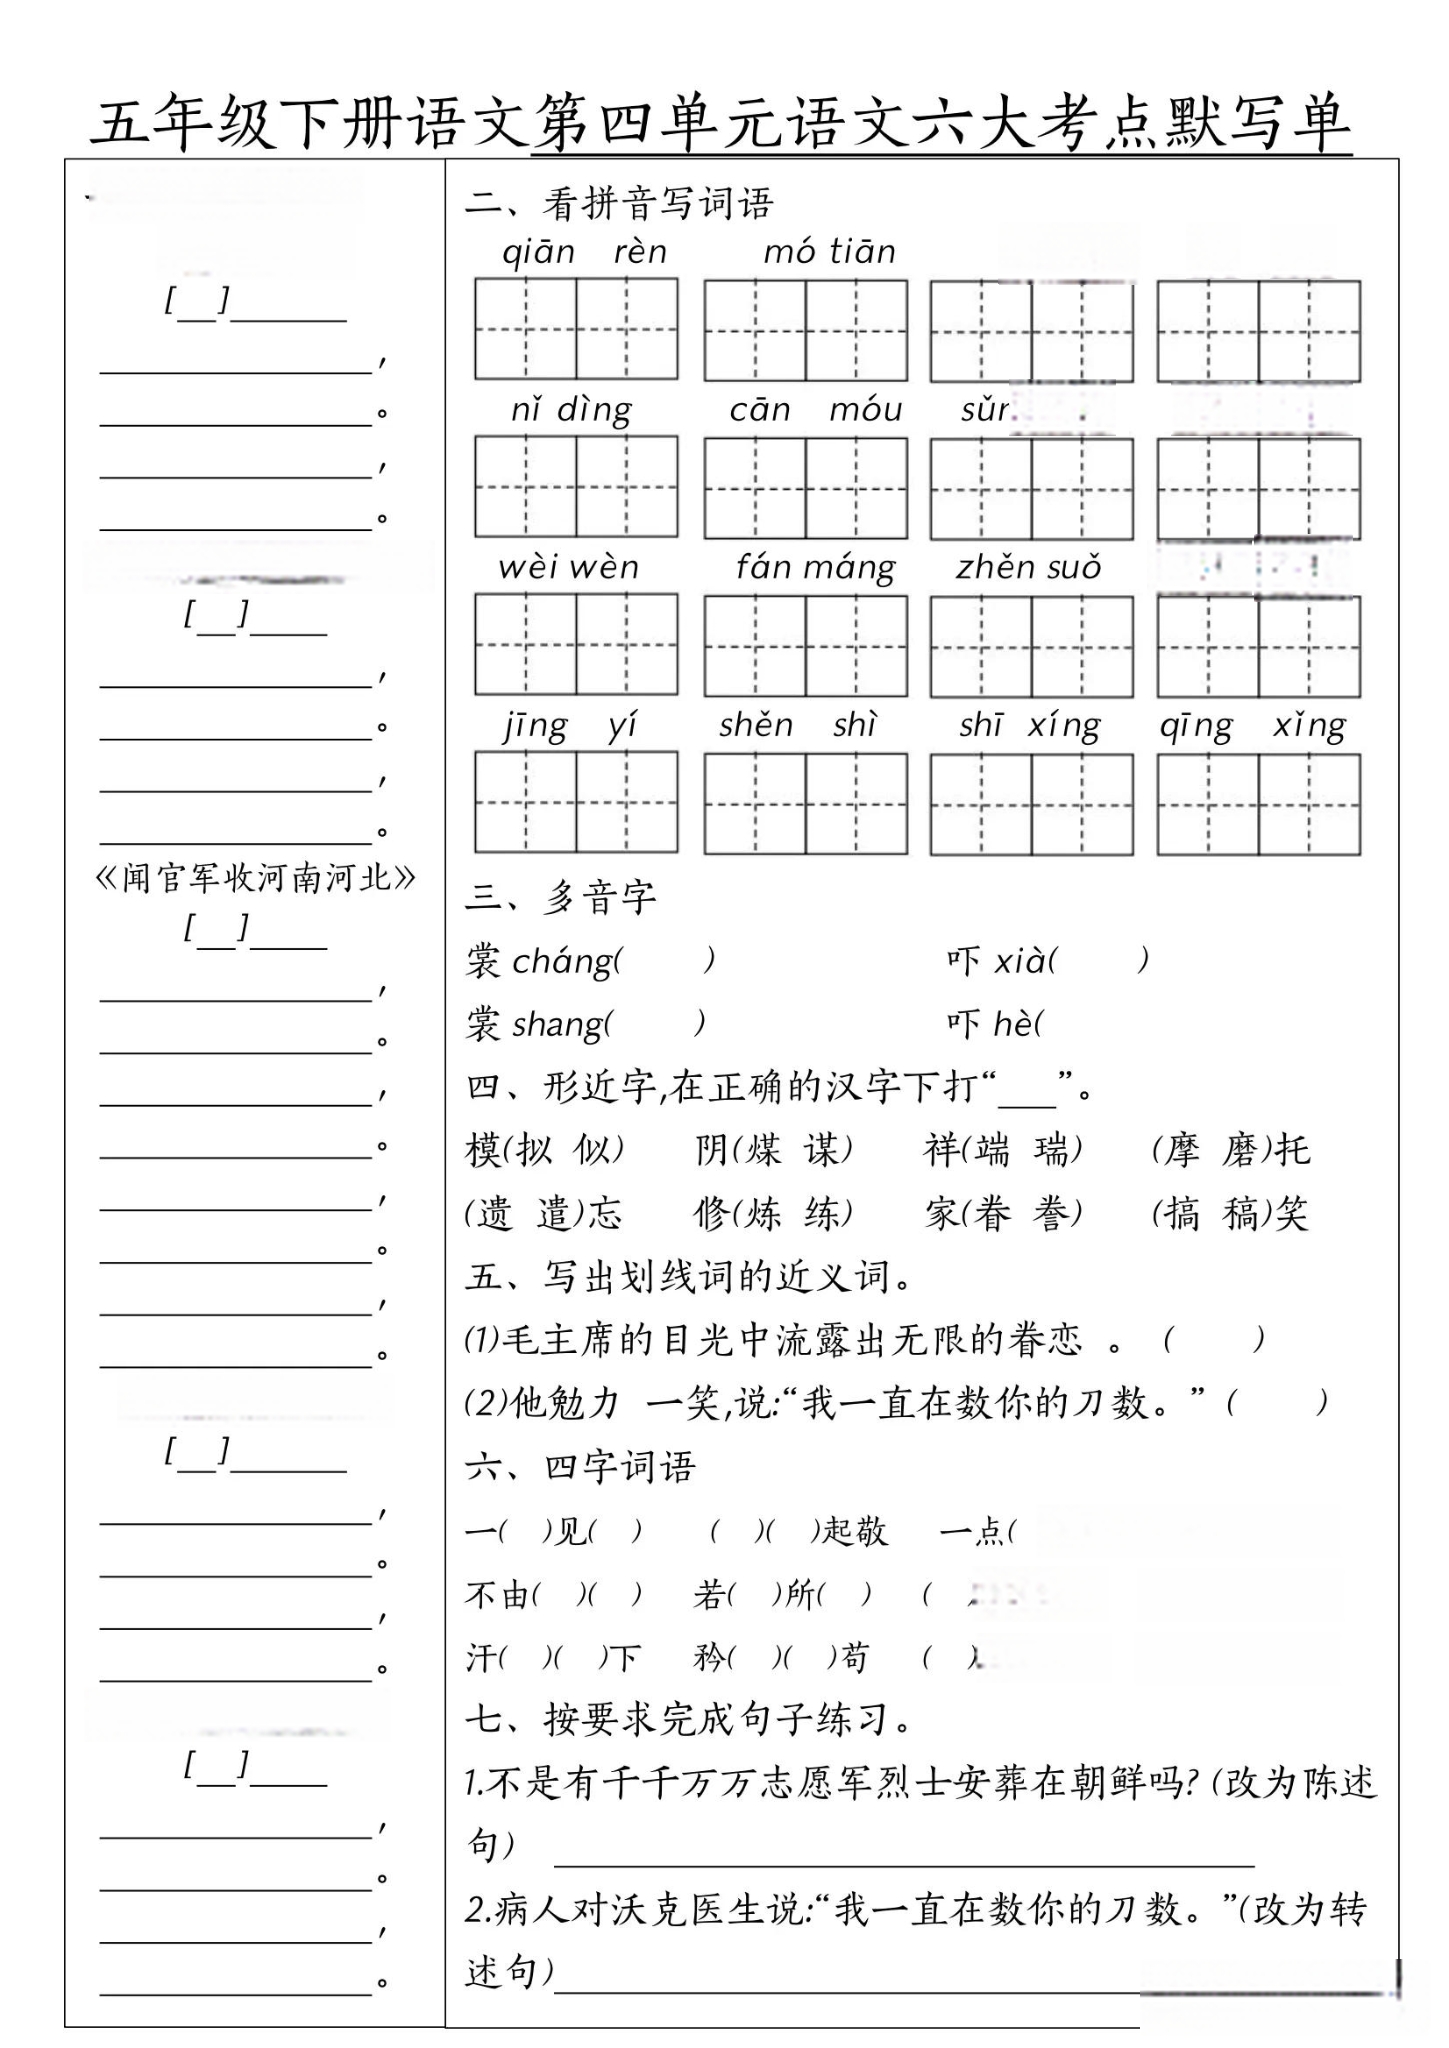 五年级下册语文第四单元语文六大考点默写单
[__]______
______________，
______________。
______________，
______________。
[__]____
______________，
______________。
______________，
______________。
《闻官军收河南河北》
[__]____
______________，
______________。
______________，
______________。
______________，
______________。
______________，
______________。
[__]______
______________，
______________。
______________，
______________。
[__]____
______________，
______________。
______________，
______________。
二、看拼音写词语
qiān rèn mó tiān
nǐ dìng cān móu
wèi wèn fán máng zhěn suǒ
jīng yí shěn shì shī xíng qīng xǐng
三、多音字
裳 cháng( ) 吓 xià( )
裳 shang( ) 吓 hè(
四、形近字,在正确的汉字下打“___”。
模(拟 似) 阴(煤 谋) 祥(端 瑞) (摩 磨)托
(遗 遣)忘 修(炼 练) 家(眷 誊) (搞 稿)笑
五、写出划线词的近义词。
(1)毛主席的目光中流露出无限的眷恋 。 ( )
(2)他勉力 一笑,说:“我一直在数你的刀数。” ( )
六、四字词语
一( )见( ) ( )( )起敬 一点(
不由( )( ) 若( )所( ) (
汗( )( )下 矜( )( )苟 ( )
七、按要求完成句子练习。
1.不是有千千万万志愿军烈士安葬在朝鲜吗? (改为陈述
句) ____________________________________
2.病人对沃克医生说:“我一直在数你的刀数。”(改为转
述句)____________________________________